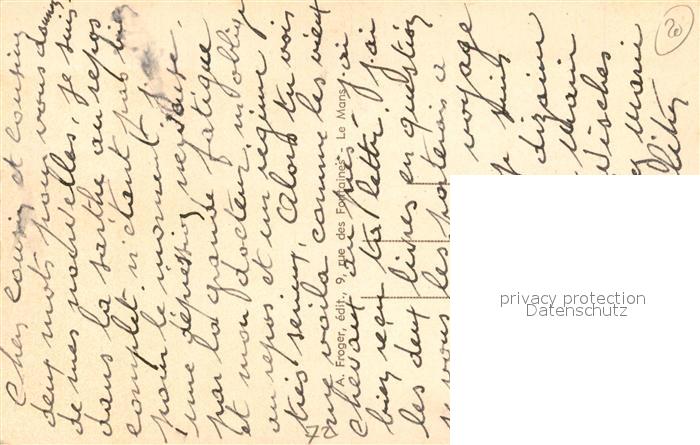 Cher cousin et cousine
deux mots pour vous donner
de mes nouvelles je suis
dans la sarthe au repos
complet n'étant pas bien
pour le moment
une dépression nerveuse
par la grande fatigue
et mon docteur m'oblige
au repos et un régime
très serieux, Alors tu vois
me voila comme les vieux
chevaux au pré. j'ai
bien reçu ta lettre. j'ai
les deux livres en question
je vous les porterais a
voyage
dizaine
A. Froger, édit., 9, rue des Fontaines - Le Mans
72
20
privacy protection
Datenschutz